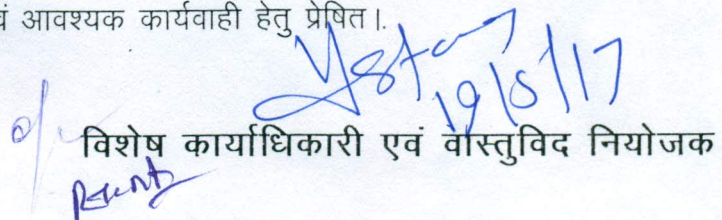 वं आवश्यक कार्यवाही हेतु प्रेषित।
19/5/17
विशेष कार्याधिकारी एवं वास्तुविद नियोजक